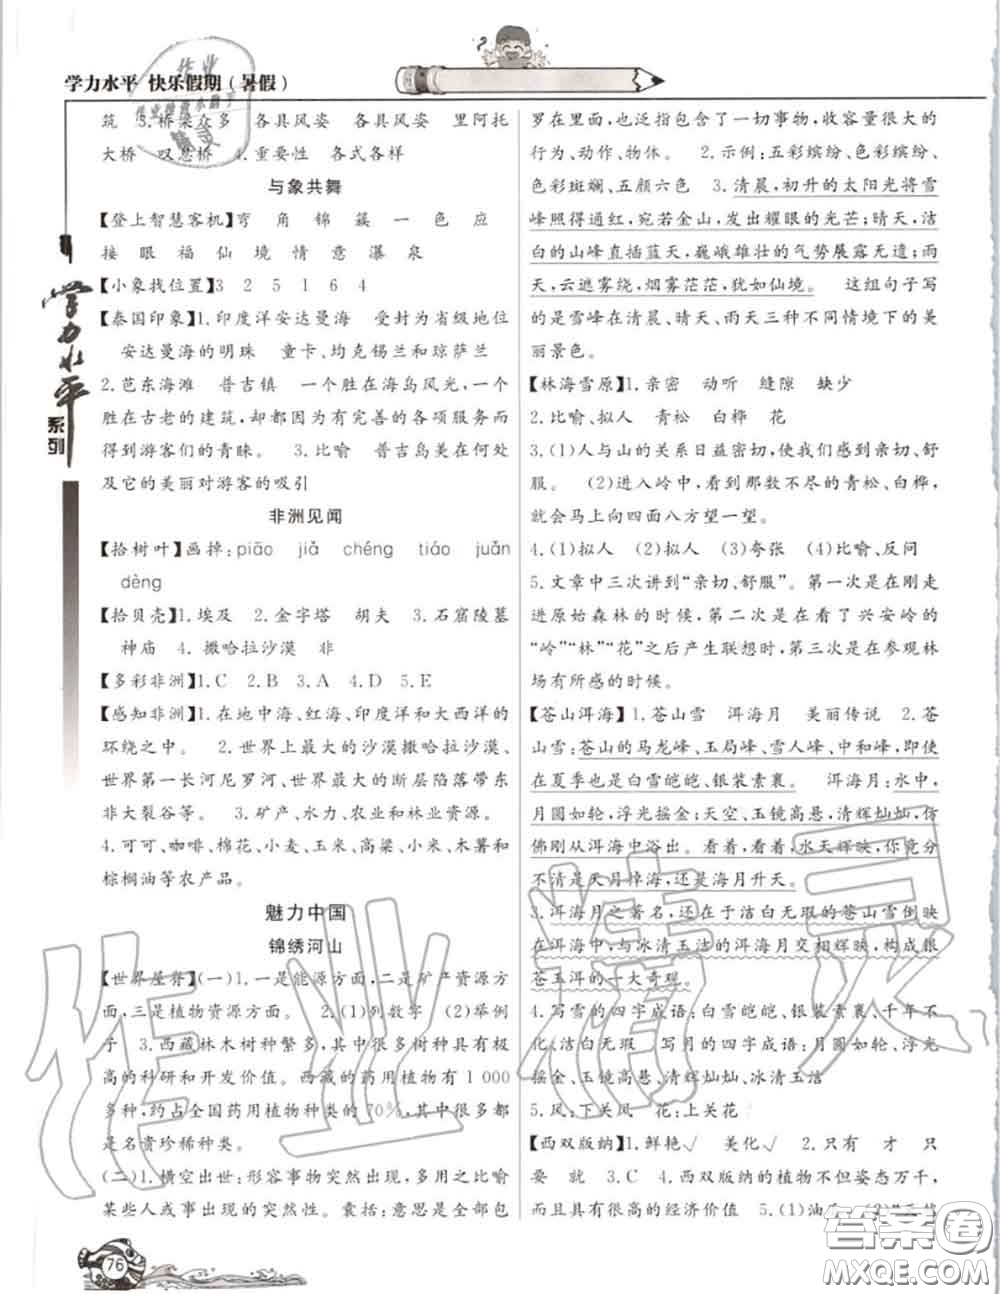 学力水平 快乐假期(暑假)
筑 3.桥梁众多 各具风姿 各具风姿 里阿托
大桥 叹息桥 4.重要性 各式各样
与象共舞
【登上智慧客机】穹 角 锦 簇 一 色 应
接 眼 福 仙 境 情 意 瀑 泉
【小象找位置】3 2 5 1 6 4
【泰国印象】1.印度洋安达曼海 受封为省级地位
安达曼海的明珠 童卡、均克锡兰和琼萨兰
2.芭东海滩 普吉镇 一个胜在海岛风光,一个
胜在古老的建筑,却都因为有完善的各项服务而
得到了游客们的青睐。 3.比喻 普吉岛美在何处
及它的美丽对游客的吸引
非洲见闻
【拾树叶】画掉:piāo jiǎ chéng tiáo juǎn
dèng
【拾贝壳】1.埃及 2.金字塔 胡夫 3.石窟陵墓
神庙 4.撒哈拉沙漠 非
【多彩非洲】1.C 2.B 3.A 4.D 5.E
【感知非洲】1.在地中海、红海、印度洋和大西洋的
环绕之中。 2.世界上最大的沙漠撒哈拉沙漠、
世界第一长河尼罗河、世界最大的断层陷落带东
非大裂谷等。 3.矿产、水力、农业和林业资源。
4.可可、咖啡、棉花、小麦、玉米、高粱、小米、木薯和
棕榈油等农产品。
魅力中国
锦绣河山
【世界屋脊】(一)1.一是能源方面,二是矿产资源方
面,三是植物资源方面。 2.(1)列数字 (2)举例
子 3.西藏林木树种繁多,其中很多树种具有极
高的科研和开发价值。西藏的药用植物有1 000
多种,约占全国药用植物种类的70%,其中很多都
是名贵珍稀种类。
(二)1.横空出世:形容事物突然出现,用来比喻
某些人或事出现的突然性。囊括:意思是全部包
76
罗在里面,也泛指包含了一切事物,收容量很大的
行为、动作、物体。 2.示例:五彩缤纷、色彩缤纷、
色彩斑斓、五颜六色 3.清晨,初升的太阳光将雪
峰照得通红,宛若金山,发出耀眼的光芒;晴天,洁
白的山峰直插蓝天,巍峨雄壮的气势展露无遗;雨
天,云遮雾绕,烟雾茫茫,犹如仙境。 这组句子写
的是雪峰在清晨、晴天、雨天三种不同情境下的美
丽景色。
【林海雪原】1.亲密 动听 缝隙 缺少
2.比喻、拟人 青松 白桦 花
3.(1)人与山的关系日益密切,使我们感到亲切、舒
服。 (2)进入岭中,看到那数不尽的青松、白桦,
就会马上向四面八方望一望。
4.(1)拟人 (2)拟人 (3)夸张 (4)比喻、反问
5.文章中三次讲到“亲切、舒服”。第一次是在刚走
进原始森林的时候,第二次是在看了兴安岭的
“岭”“林”“花”之后产生联想时,第三次是在参观林
场有所感的时候。
【苍山洱海】1.苍山雪 洱海月 美丽传说 2.苍
山雪:苍山的马龙峰、玉局峰、雪人峰、中和峰,即使
在夏季也是白雪皑皑、银装素裹。 洱海月:水中,
月圆如轮,浮光摇金;天空、玉镜高悬,清辉灿灿,仿
佛刚从洱海中浴出。看着,看着,水天辉映,你竟分
不清是天月掉海,还是海月升天。
3.洱海月之著名,还在于洁白无瑕的苍山雪倒映
在洱海中,与冰清玉洁的洱海月交相辉映,构成银
苍玉洱的一大奇观。
4.写雪的四字成语:白雪皑皑、银装素裹、千年不
化、洁白无瑕 写月的四字成语:月圆如轮、浮光
摇金、玉镜高悬、清辉灿灿、冰清玉洁
5.风:下关风 花:上关花
【西双版纳】1.鲜艳√ 美化√ 2.只有 才 只
要 就 3.C 4.西双版纳的植物不但姿态万千,
而且具有很高的经济价值 5.(1)油
学力水平
系列
作业精灵
答案圈
MXQE.COM